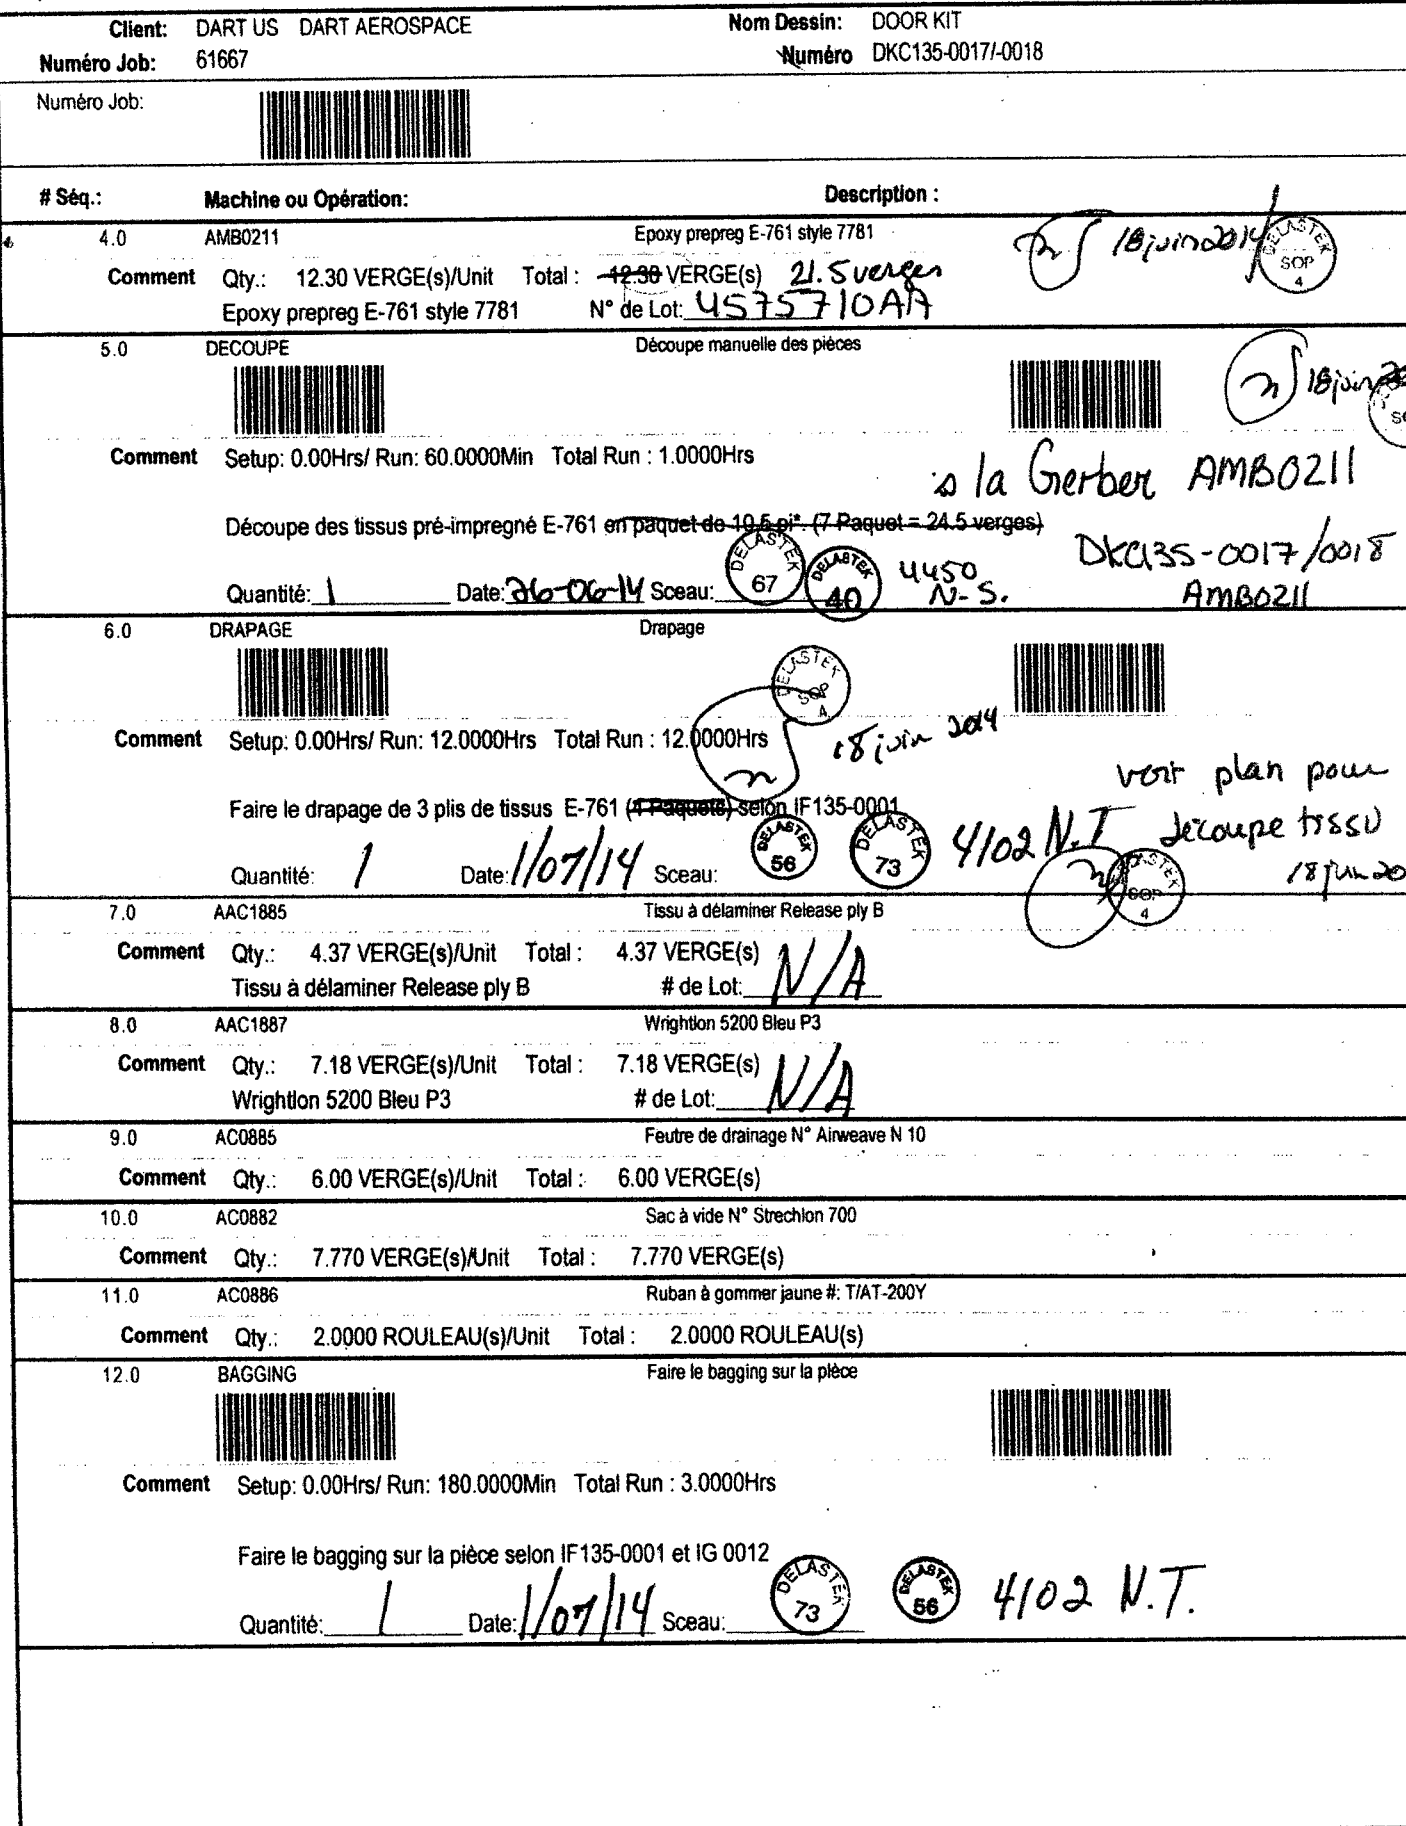 Client: DART US DART AEROSPACE Nom Dessin: DOOR KIT
Numéro Job: 61667 Numéro DKC135-0017/-0018
Numéro Job:
# Séq.: Machine ou Opération: Description :
4.0 AMB0211 Epoxy prepreg E-761 style 7781 18 juin 2014 DELASTEK SOP 4
Comment Qty.: 12.30 VERGE(s)/Unit Total : 12.30 VERGE(s) 21.5 verges
Epoxy prepreg E-761 style 7781 N° de Lot: 4575710AA
5.0 DECOUPE Découpe manuelle des pièces
18 juin
Comment Setup: 0.00Hrs/ Run: 60.0000Min Total Run : 1.0000Hrs
la Gerber AMB0211
Découpe des tissus pré-impregné E-761 en paquet de 10.5 pi². (7 Paquet = 24.5 verges)
DKC135-0017/0018
AMB0211
Quantité: 1 Date: 26-06-14 Sceau: DELASTEK 67 DELASTEK 40 4450 N-S.
6.0 DRAPAGE Drapage
DELASTEK SOP 4
Comment Setup: 0.00Hrs/ Run: 12.0000Hrs Total Run : 12.0000Hrs 18 juin 2014
voir plan pour
Faire le drapage de 3 plis de tissus E-761 (4 Paquets) selon IF135-0001
découpe tissu
18 juin 20
Quantité: 1 Date: 1/07/14 Sceau: DELASTEK 56 DELASTEK 73 4102 N.T DELASTEK SOP 4
7.0 AAC1885 Tissu à délaminer Release ply B
Comment Qty.: 4.37 VERGE(s)/Unit Total : 4.37 VERGE(s)
Tissu à délaminer Release ply B # de Lot: N/A
8.0 AAC1887 Wrightlon 5200 Bleu P3
Comment Qty.: 7.18 VERGE(s)/Unit Total : 7.18 VERGE(s)
Wrightlon 5200 Bleu P3 # de Lot: N/A
9.0 AC0885 Feutre de drainage N° Airweave N 10
Comment Qty.: 6.00 VERGE(s)/Unit Total : 6.00 VERGE(s)
10.0 AC0882 Sac à vide N° Strechlon 700
Comment Qty.: 7.770 VERGE(s)/Unit Total : 7.770 VERGE(s)
11.0 AC0886 Ruban à gommer jaune #: T/AT-200Y
Comment Qty.: 2.0000 ROULEAU(s)/Unit Total : 2.0000 ROULEAU(s)
12.0 BAGGING Faire le bagging sur la pièce
Comment Setup: 0.00Hrs/ Run: 180.0000Min Total Run : 3.0000Hrs
Faire le bagging sur la pièce selon IF135-0001 et IG 0012
Quantité: 1 Date: 1/07/14 Sceau: DELASTEK 73 DELASTEK 56 4102 N.T.